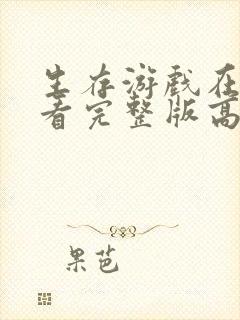 生存游戏在
看完整版高
果芭